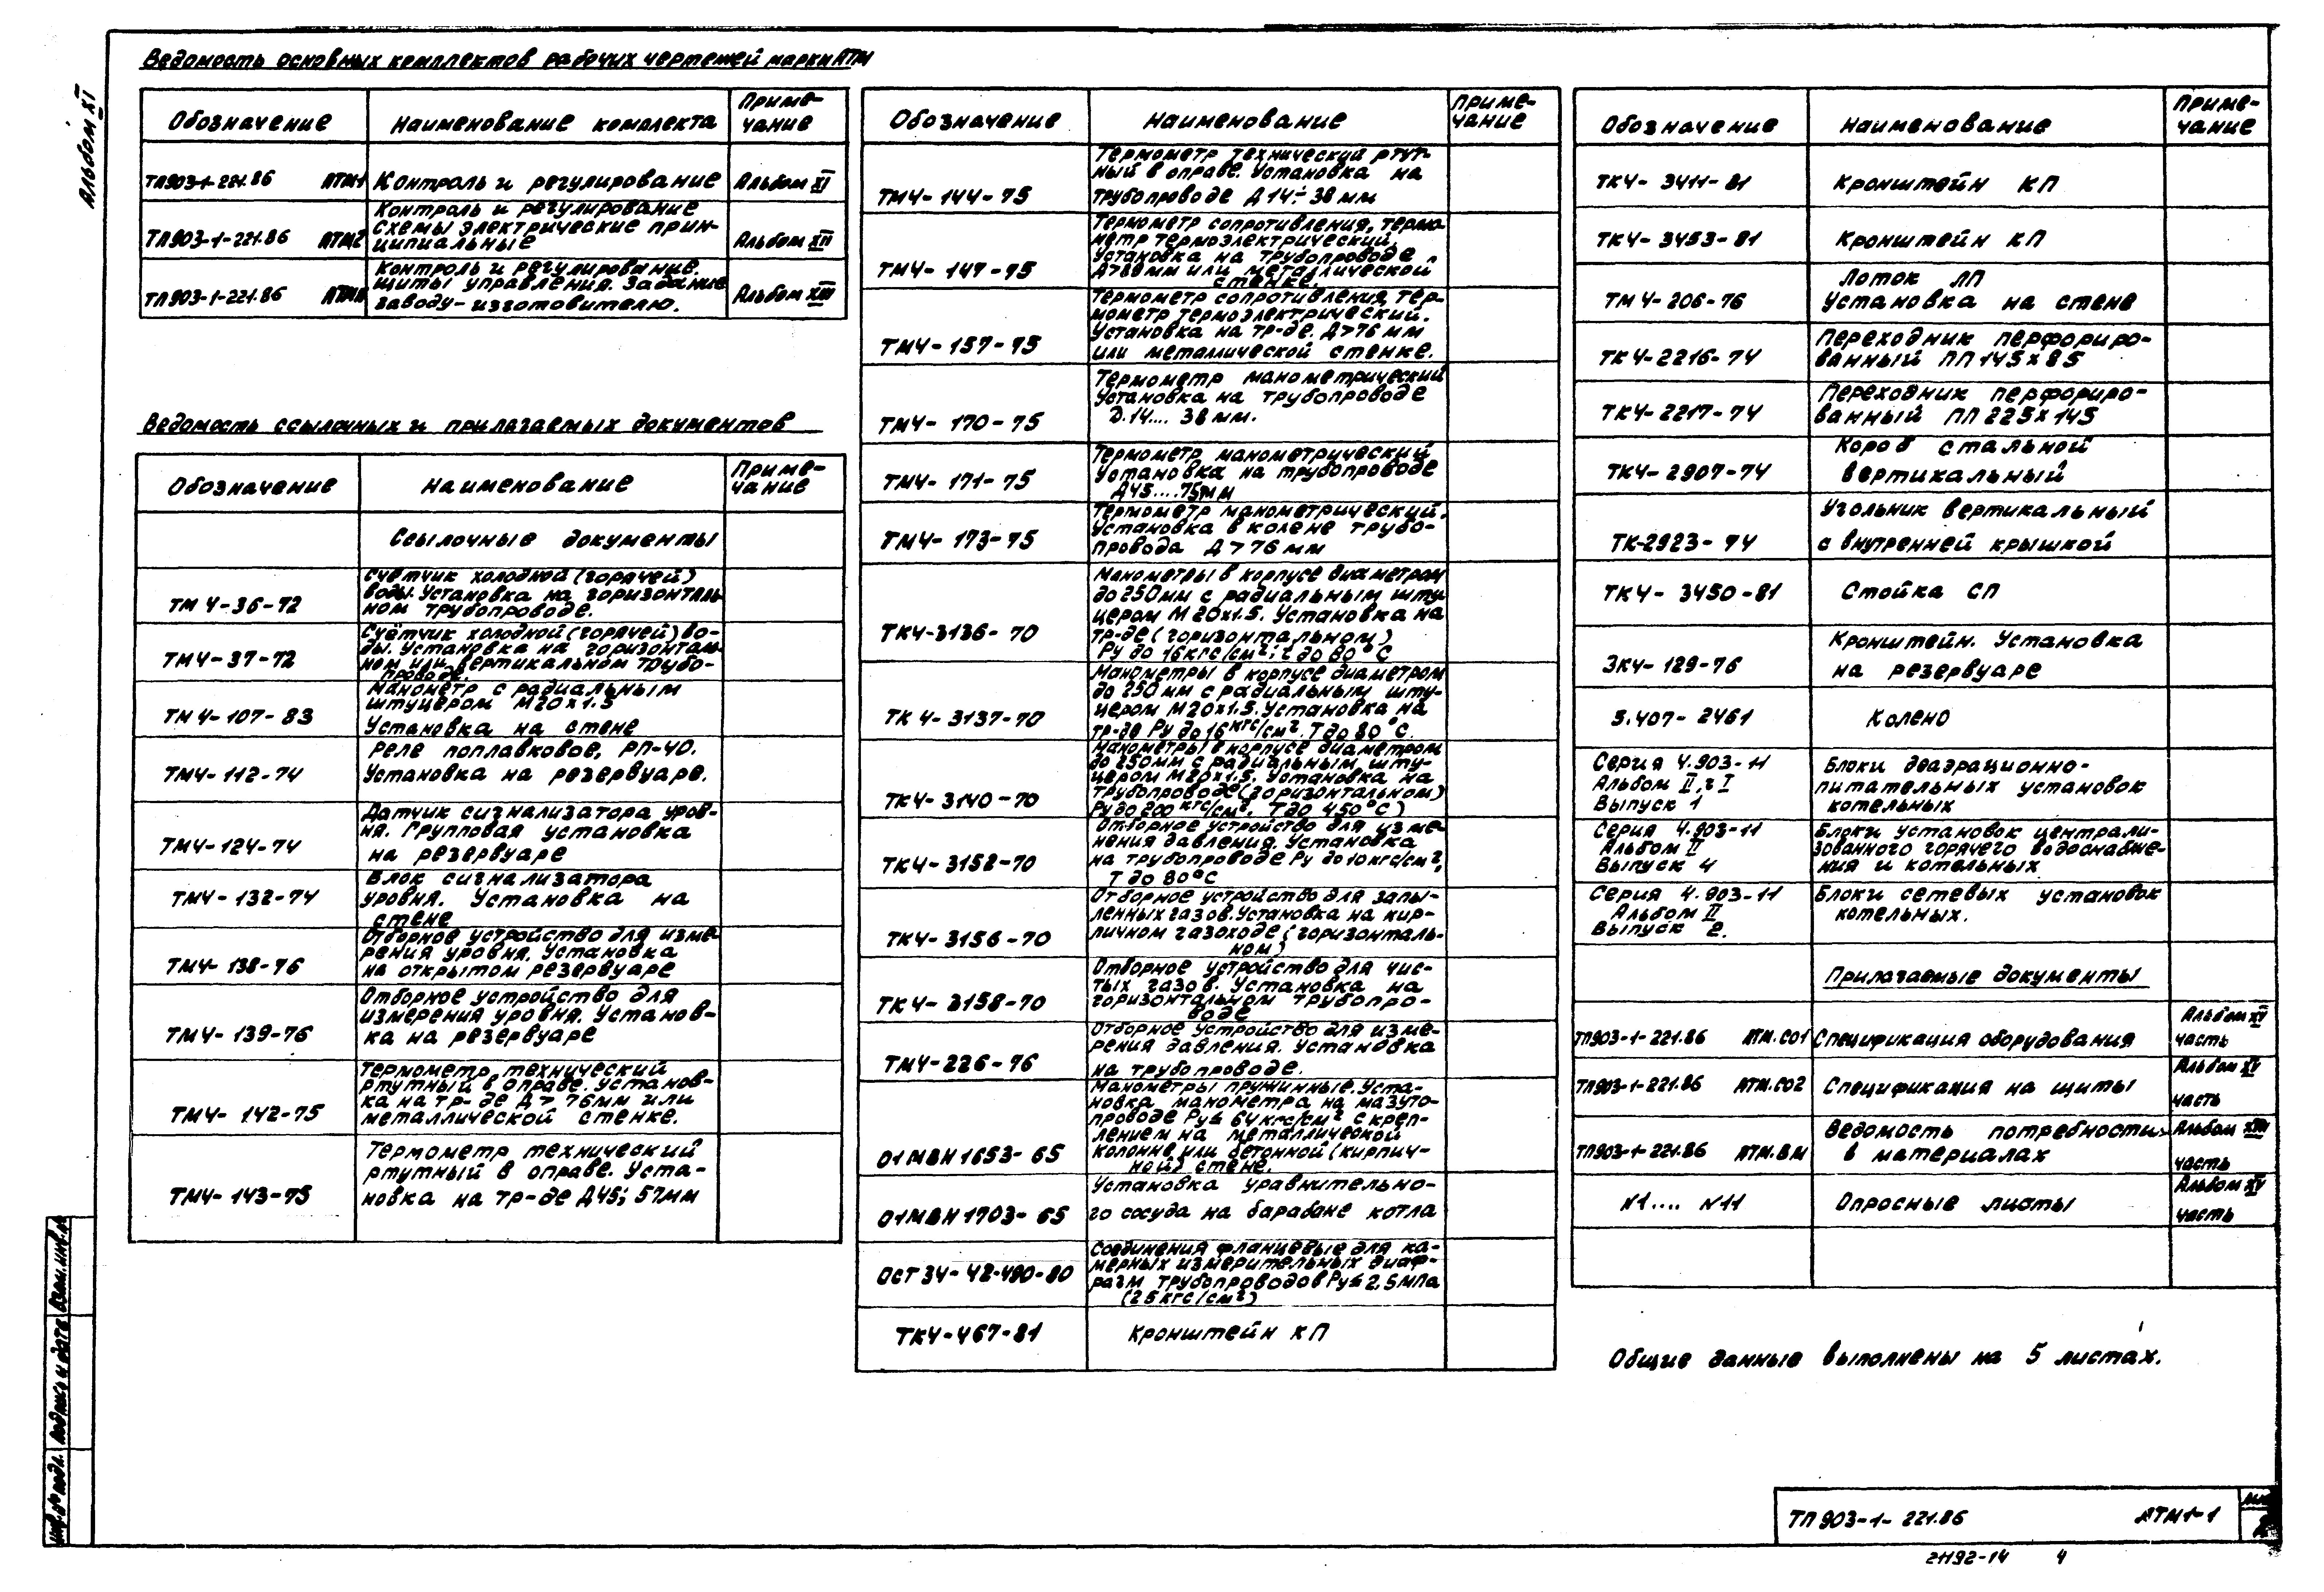 Альбом XI
Ведомость основных комплектов рабочих чертежей марки АТМ
Обозначение Наименование комплекта Приме-
чание
ТП903-1-221.86 АТМ1 Контроль и регулирование Альбом XI
ТП903-1-221.86 АТМ2 Контроль и регулирование
Схемы электрические прин-
ципиальные Альбом XII
ТП903-1-221.86 Контроль и регулирование.
Щиты управления. Задание
заводу-изготовителю. Альбом XIII
Ведомость ссылочных и прилагаемых документов
Обозначение Наименование Приме-
чание
Ссылочные документы
ТМ4-36-72 Счётчик холодной (горячей)
воды. Установка на горизонталь-
ном трубопроводе.
ТМ4-37-72 Счётчик холодной (горячей) во-
ды. Установка на горизонталь-
ном или вертикальном трубо-
проводе.
ТМ4-107-83 Манометр с радиальным
штуцером М20х1.5
Установка на стене
ТМ4-112-74 Реле поплавковое, РП-40.
Установка на резервуаре.
ТМ4-124-74 Датчик сигнализатора уров-
ня. Групповая установка
на резервуаре
ТМ4-132-74 Блок сигнализатора
уровня. Установка на
стене
ТМ4-138-76 Отборное устройство для изме-
рения уровня. Установка
на открытом резервуаре
ТМ4-139-76 Отборное устройство для
измерения уровня. Установ-
ка на резервуаре
ТМ4-142-75 Термометр технический
ртутный в оправе. Установ-
ка на тр-де Д > 76мм или
металлической стенке.
ТМ4-143-75 Термометр технический
ртутный в оправе. Уста-
новка на тр-де Д45; 57мм
Обозначение Наименование Приме-
чание
ТМ4-144-75 Термометр технический ртут-
ный в оправе. Установка на
трубопроводе Д 14÷38 мм
ТМ4-147-75 Термометр сопротивления, термо-
метр термоэлектрический.
Установка на трубопроводе
или металлической
стенке.
ТМ4-157-75 Термометр сопротивления, тер-
мометр термоэлектрический.
Установка на тр-де. Д>76 мм
или металлической стенке.
ТМ4-170-75 Термометр манометрический
Установка на трубопроводе
Д.14.... 38 мм.
ТМ4-171-75 Термометр манометрический
Установка на трубопроводе
Д45....75мм
ТМ4-173-75 Термометр манометрический.
Установка в колене трубо-
провода Д > 76 мм
ТК4-3136-70 Манометры в корпусе диаметром
до 250мм с радиальным шту-
цером М 20х1.5. Установка на
тр-де (горизонтальном)
Ру до 16кгс/см²; t до 80°С
ТК4-3137-70 Манометры в корпусе диаметром
до 250 мм с радиальным шту-
цером М20х1.5. Установка на
тр-де Ру до 16 кгс/см². Т до 80°С.
ТК4-3140-70 Манометры в корпусе диаметром
до 250мм с радиальным шту-
цером М20х1.5. Установка на
трубопроводе (горизонтальном)
Ру до 200 кгс/см². Т до 450°С)
ТК4-3152-70 Отборное устройство для изме-
нения давления. Установка
на трубопроводе Ру до 10 кгс/см²,
Т до 80°С
ТК4-3156-70 Отборное устройство для запы-
ленных газов. Установка на кир-
пичном газоходе (горизонталь-
ном)
ТК4-3158-70 Отборное устройство для чис-
тых газов. Установка на
горизонтальном трубопро-
воде
ТМ4-226-76 Отборное устройство для изме-
рения давления. Установка
на трубопроводе.
01МВН1653-65 Манометры пружинные. Уста-
новка манометра на мазуто-
проводе Ру≤ 64 кгс/см² с креп-
лением на металлической
колонне или бетонной (кирпич-
ной) стене.
01МВН1703-65 Установка уравнительно-
го сосуда на барабане котла
ОСТ 34-42-490-80 Соединения фланцевые для ка-
мерных измерительных диаф-
рагм трубопроводов Ру≤ 2.5 МПа
(25 кгс/см²)
ТК4-467-81 Кронштейн КП
Обозначение Наименование Приме-
чание
ТК4-3411-81 Кронштейн КП
ТК4-3453-81 Кронштейн КП
ТМ4-206-76 Лоток ЛП
Установка на стене
ТК4-2216-74 Переходник перфориро-
ванный ПП 145х85
ТК4-2217-74 Переходник перфориро-
ванный ПП 225х145
ТК4-2907-74 Короб стальной
вертикальный
ТК-2923-74 Угольник вертикальный
с внутренней крышкой
ТК4-3450-81 Стойка СП
ЗК4-129-76 Кронштейн. Установка
на резервуаре
5.407-2461 Колено
Серия 4.903-11
Альбом II, ч I
Выпуск 1 Блоки деаэрационно-
питательных установок
котельных
Серия 4.903-11
Альбом II
Выпуск 4 Блоки установок централи-
зованного горячего водоснабже-
ния и котельных
Серия 4.903-11
Альбом II
Выпуск 2. Блоки сетевых установок
котельных.
Прилагаемые документы
ТП903-1-221.86 АТМ.СО1 Спецификация оборудования Альбом XV
часть
ТП903-1-221.86 АТМ.СО2 Спецификация на щиты Альбом XV
часть
ТП903-1-221.86 АТМ.ВМ Ведомость потребности
в материалах Альбом XVII
часть
N1.... N11 Опросные листы Альбом XV
часть
Общие данные выполнены на 5 листах.
Инв.№ подл. Подпись и дата Взам.инв.№
ТП 903-1-221.86 АТМ1-1
21192-14 4